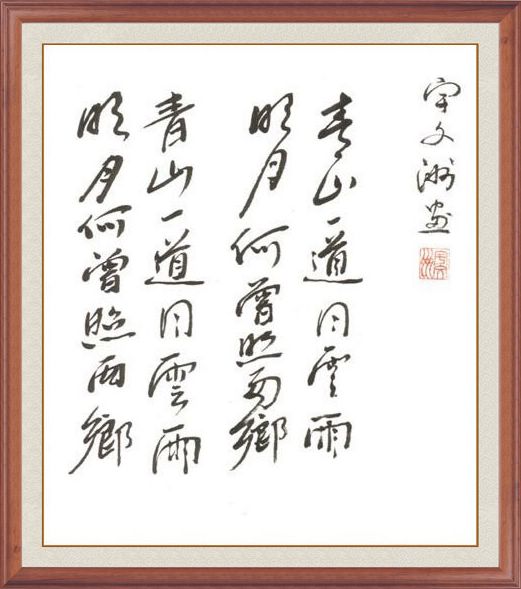 文
青山一道同雲雨
明月何曾照两鄉
青山一道同雲雨
明月何曾照两鄉